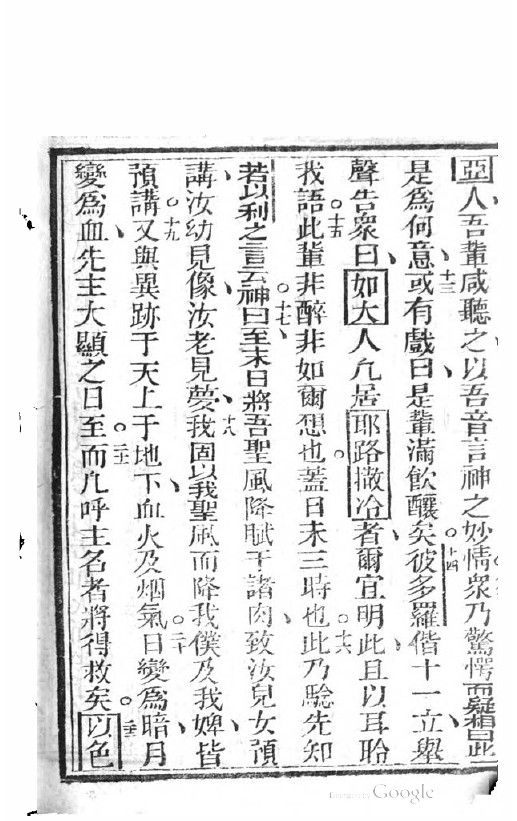 亞人吾輩咸聽之以吾音言神之妙情衆乃驚愕而疑相曰此
是爲何意十三或有戲曰是輩滿飲釀矣十四彼多羅偕十一立舉
聲告衆曰如大人凢居耶路撒冷者爾宜明此且以耳聆
我語十五此輩非醉非如爾想也蓋日未三時也十六此乃驗先知
若以利之言云神曰十七至末日將吾聖風降賦于諸肉致汝兒女預
講汝幼見像汝老見夢十八我固以我聖風而降我僕及我婢皆
預講十九又與異跡于天上于地下血火及烟氣二十日變爲暗月
變爲血先主大顯之日至二十一而凢呼主名者將得救矣二十二以色
Google